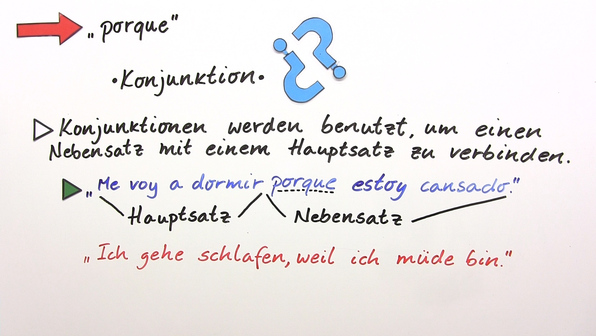 „porque"
•Konjunktion•
Konjunktionen werden benutzt, um einen
Nebensatz mit einem Hauptsatz zu verbinden.
„Me voy a dormir porque estoy cansado."
Hauptsatz Nebensatz
„Ich gehe schlafen, weil ich müde bin."